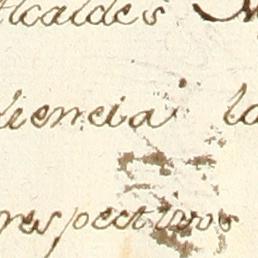 Alcaldes
diencia la
respectivos